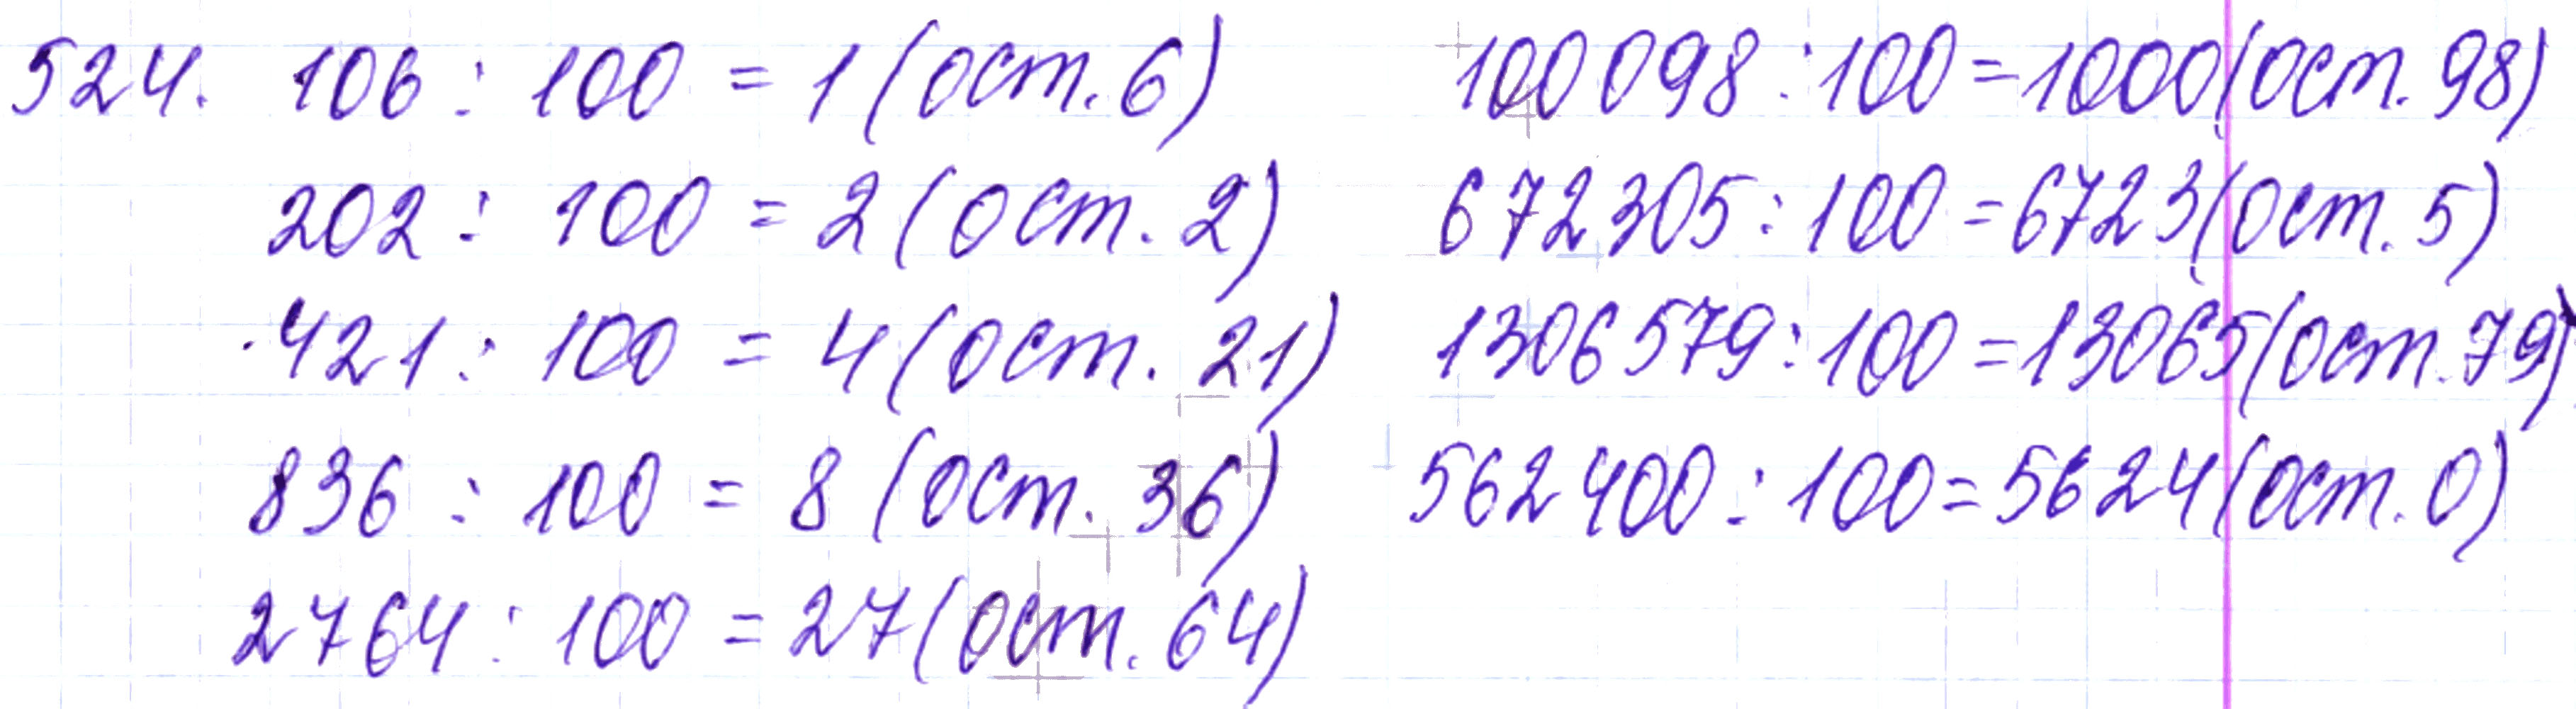 524. 106 : 100 = 1 (ост. 6)
202 : 100 = 2 (ост. 2)
421 : 100 = 4 (ост. 21)
836 : 100 = 8 (ост. 36)
2764 : 100 = 27 (ост. 64)
100098 : 100 = 1000 (ост. 98)
672305 : 100 = 6723 (ост. 5)
1306579 : 100 = 13065 (ост. 79)
562400 : 100 = 5624 (ост. 0)